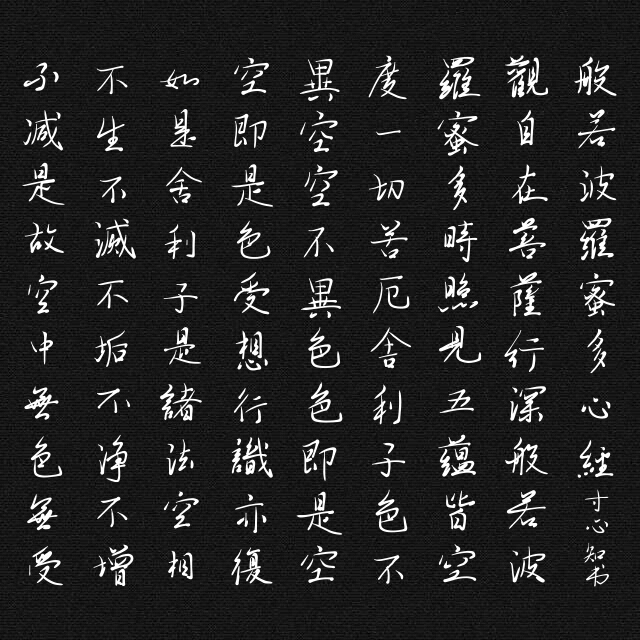 般若波羅蜜多心經
寸心知书
觀自在菩薩行深般若波
羅蜜多時照見五蘊皆空
度一切苦厄舍利子色不
異空空不異色色即是空
空即是色受想行識亦復
如是舍利子是諸法空相
不生不滅不垢不淨不增
不減是故空中無色無受